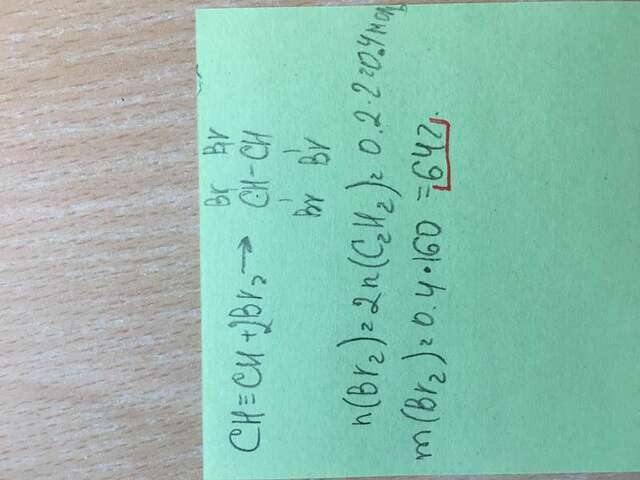 Br Br
CH≡CH + 2Br₂ → CH-CH
Br Br
n(Br₂) = 2n(C₂H₂) = 0.2·2=0.4 моль
m(Br₂) = 0.4·160 = 64г.